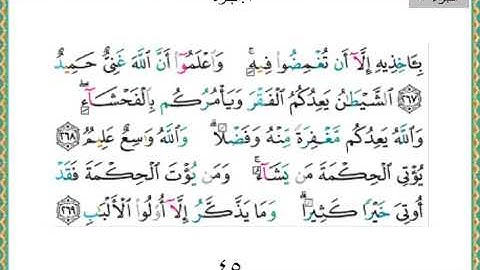 بِـَٔاخِذِيهِ إِلَّآ أَن تُغْمِضُوا۟ فِيهِ ۚ وَٱعْلَمُوٓا۟ أَنَّ ٱللَّهَ غَنِىٌّ حَمِيدٌ
٢٦٧ ٱلشَّيْطَـٰنُ يَعِدُكُمُ ٱلْفَقْرَ وَيَأْمُرُكُم بِٱلْفَحْشَآءِ ۖ
وَٱللَّهُ يَعِدُكُم مَّغْفِرَةً مِّنْهُ وَفَضْلًا ۗ وَٱللَّهُ وَٰسِعٌ عَلِيمٌ ٢٦٨
يُؤْتِى ٱلْحِكْمَةَ مَن يَشَآءُ ۚ وَمَن يُؤْتَ ٱلْحِكْمَةَ فَقَدْ
أُوتِىَ خَيْرًا كَثِيرًا ۗ وَمَا يَذَّكَّرُ إِلَّآ أُو۟لُوا۟ ٱلْأَلْبَـٰبِ ٢٦٩
٤٥